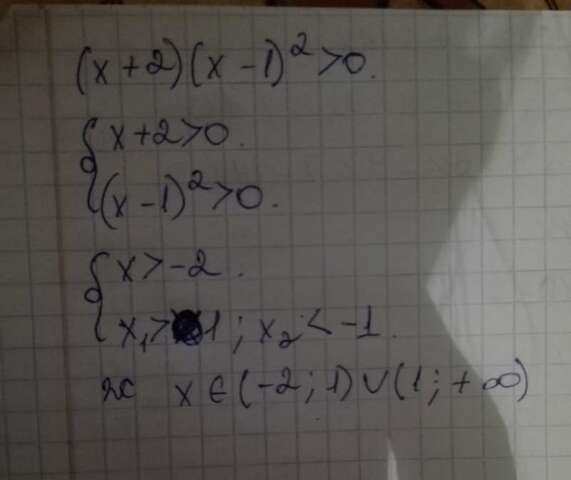 (x+2)(x-1)²>0.
{ x+2>0.
(x-1)²>0.
{ x>-2.
x₁>1; x₂<-1.
x∈(-2;1)∪(1;+∞)